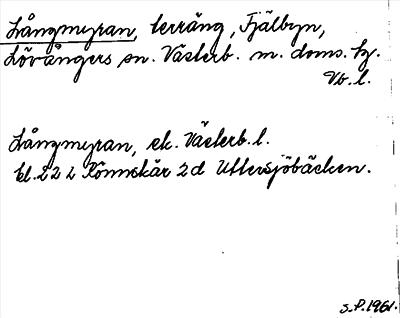 Långmyran, terräng, Fjälbyn,
Lövångers sn. Västerb. m. doms. hg.
Vb. l.
Långmyran, ek. Västerb. l.
bl. 22 L Rönnskär 2d Uttersjöbäcken.
S.P. 1961.